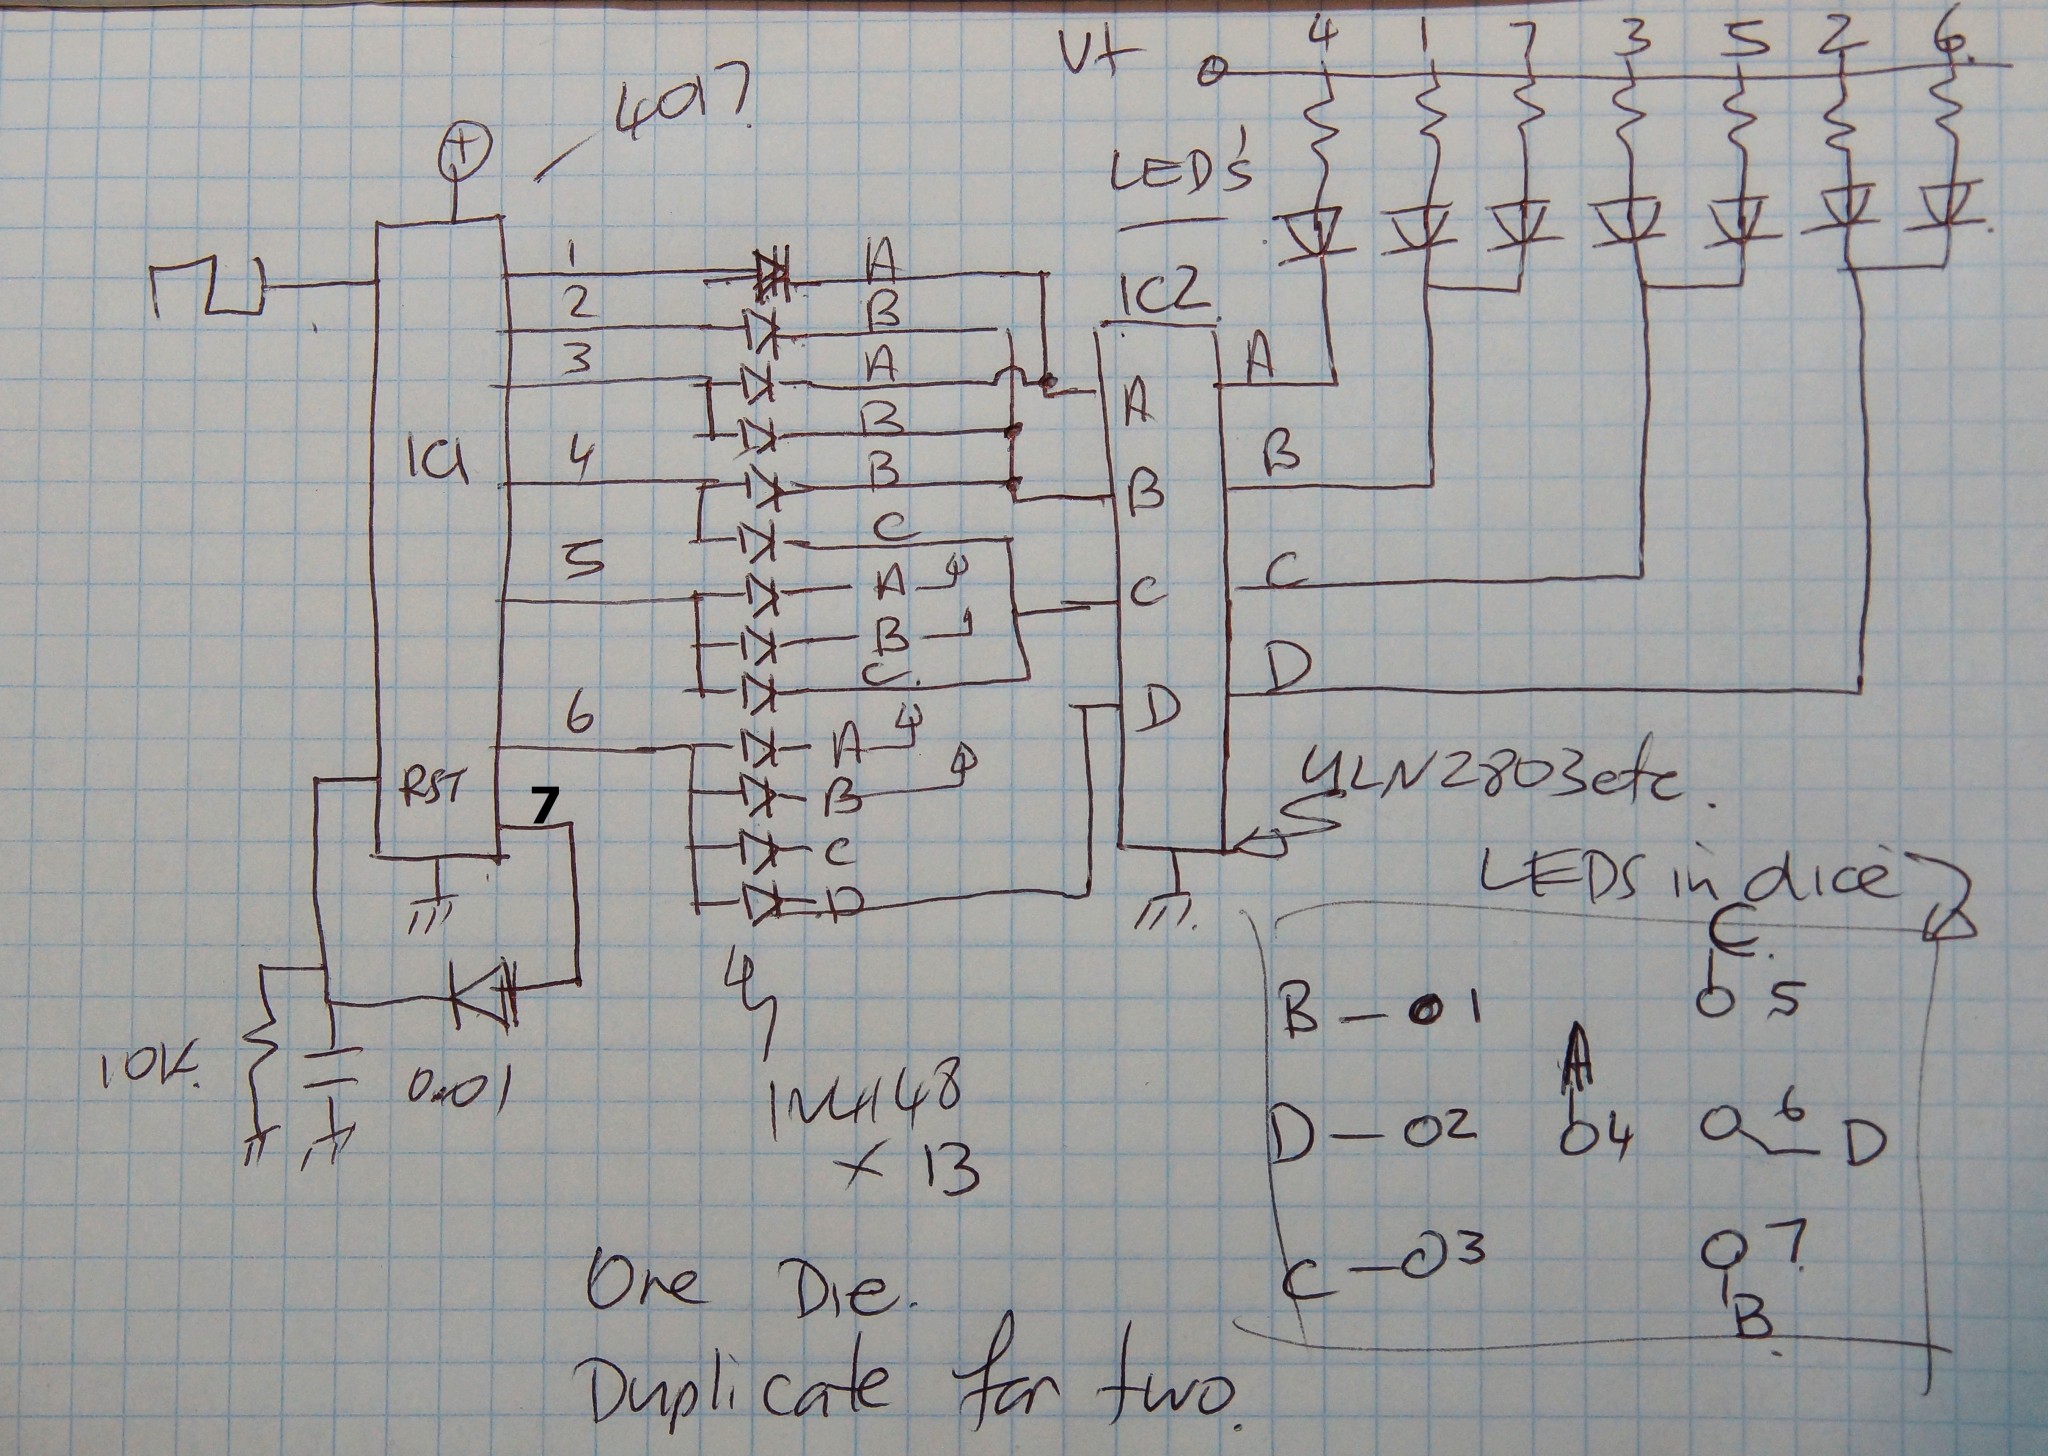 V+ 4 1 7 3 5 2 6.
4017
+
LED's
1 A
IC2
2 B
3 A
A
B
A
IC1
4 B
B
B
C
5
A
C
C
B
C.
D
D
6
A
ULN2803etc.
RST
7
B
C
D
LEDS in dice
C.
B - O1
O 5
A
10K.
0.01
1N4148
x 13
D - O2
O4
O 6 D
C - O3
O 7.
B.
One Die.
Duplicate for two.